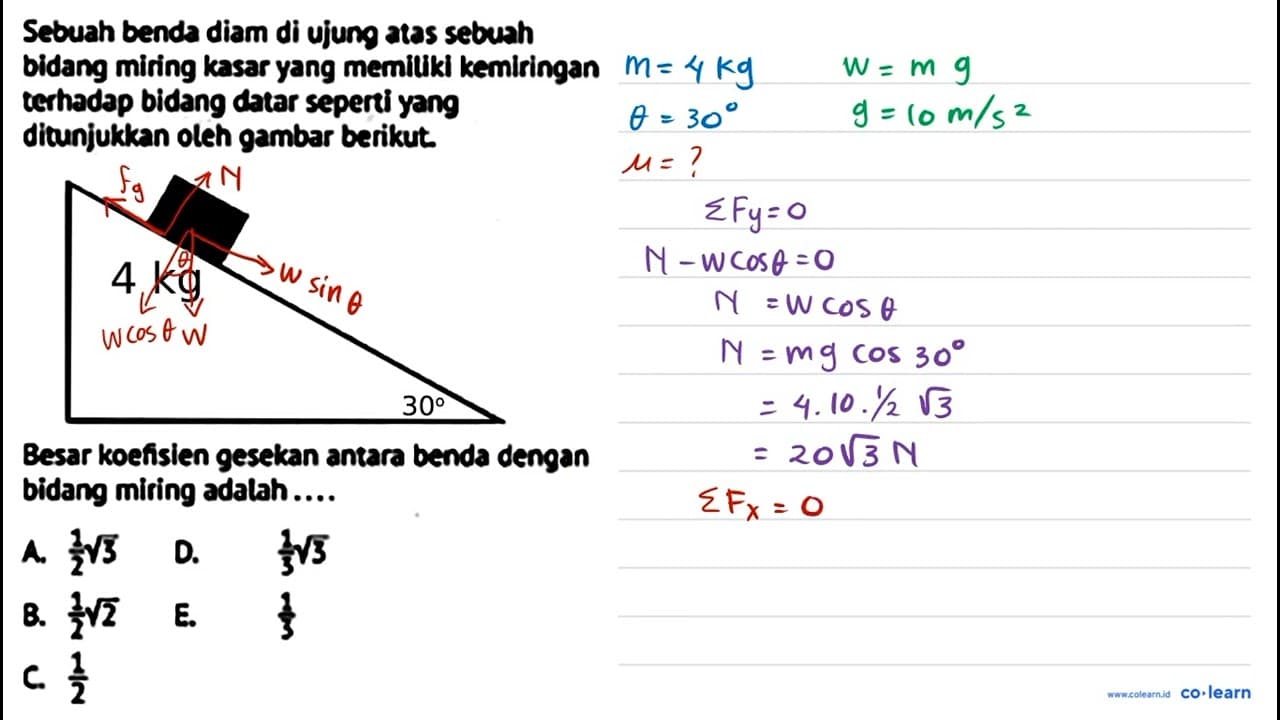 Sebuah benda diam di ujung atas sebuah
bidang miring kasar yang memiliki kemiringan
terhadap bidang datar seperti yang
ditunjukkan oleh gambar berikut.
fg
N
θ
4 kg
W sin θ
W cos θ W
30°
Besar koefisien gesekan antara benda dengan
bidang miring adalah ....
A. 1/2 √3 D. 1/3 √3
B. 1/2 √2 E. 1/3
C. 1/2
m = 4 kg W = m g
θ = 30° g = 10 m/s²
μ = ?
ΣFy = 0
N - W cos θ = 0
N = W cos θ
N = mg cos 30°
= 4.10.1/2 √3
= 20√3 N
ΣFx = 0
www.colearn.id co·learn